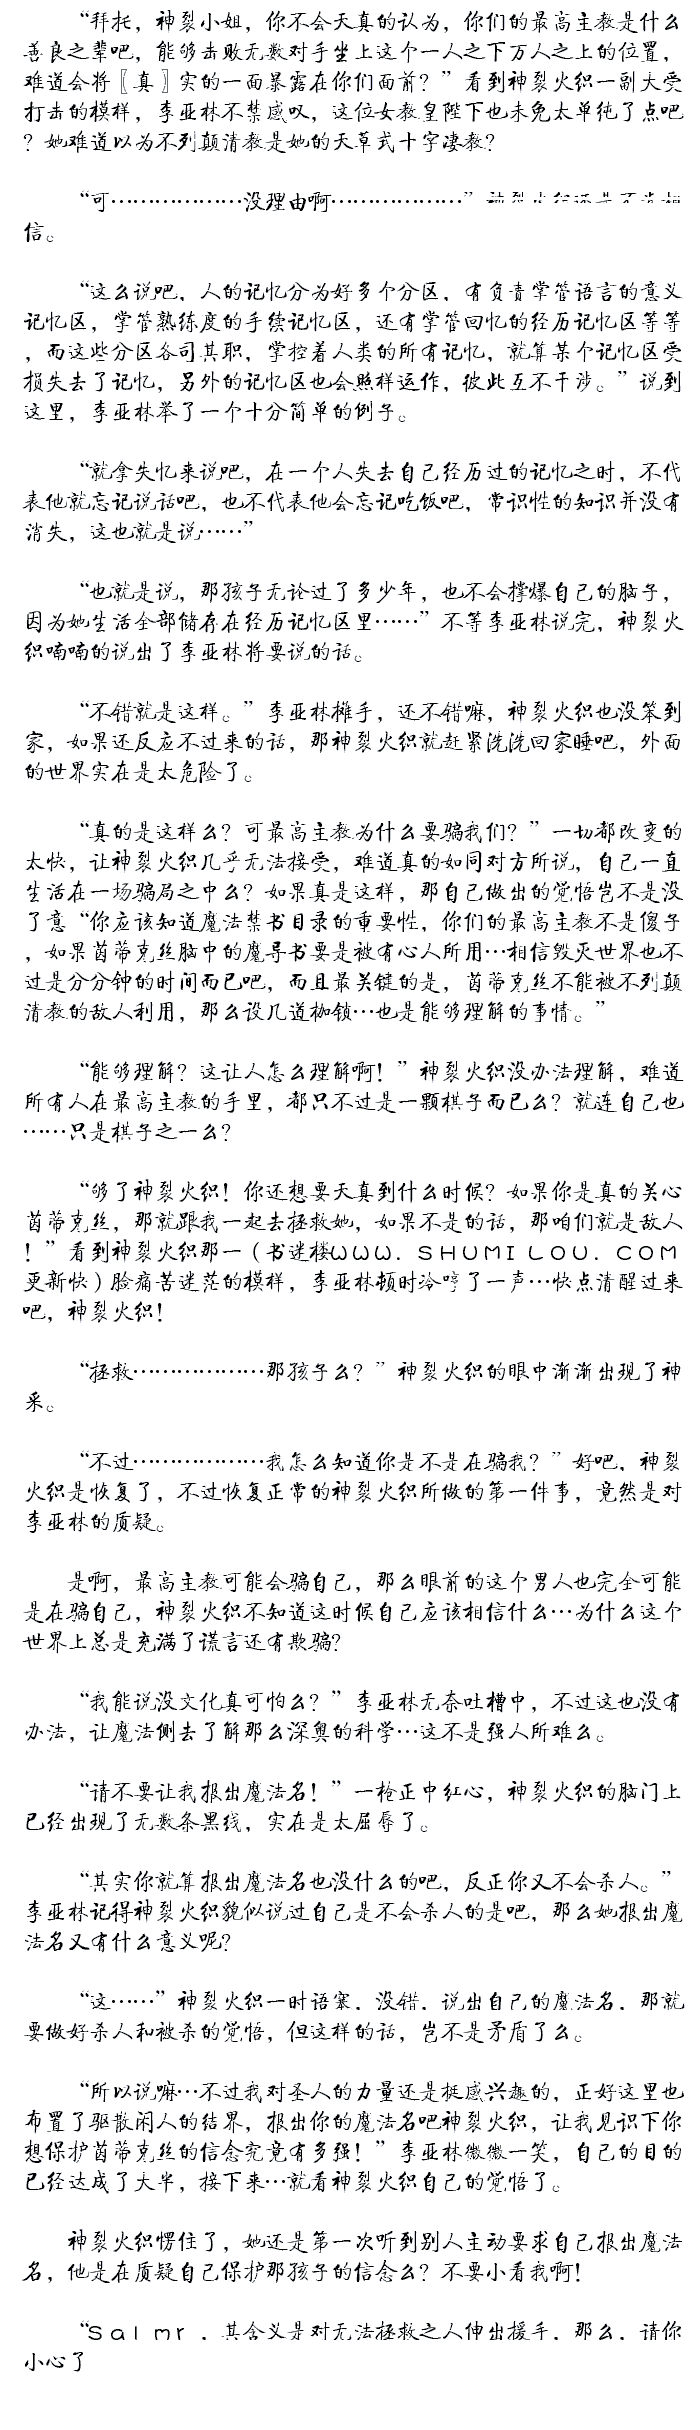 “拜托，神裂小姐，你不会天真的认为，你们的最高主教是什么
善良之辈吧，能够击败无数对手坐上这个一人之下万人之上的位置，
难道会将〖真〗实的一面暴露在你们面前？”看到神裂火织一副大受
打击的模样，李亚林不禁感叹，这位女教皇陛下也未免太单纯了点吧
？她难道以为不列颠清教是她的天草式十字凄教？
“可………………没理由啊………………”神裂火织还是不肯相
信。
“这么说吧，人的记忆分为好多个分区，有负责掌管语言的意义
记忆区，掌管熟练度的手续记忆区，还有掌管回忆的经历记忆区等等
，而这些分区各司其职，掌控着人类的所有记忆，就算某个记忆区受
损失去了记忆，另外的记忆区也会照样运作，彼此互不干涉。”说到
这里，李亚林举了一个十分简单的例子。
“就拿失忆来说吧，在一个人失去自己经历过的记忆之时，不代
表他就忘记说话吧，也不代表他会忘记吃饭吧，常识性的知识并没有
消失，这也就是说……”
“也就是说，那孩子无论过了多少年，也不会撑爆自己的脑子，
因为她生活全部储存在经历记忆区里……”不等李亚林说完，神裂火
织喃喃的说出了李亚林将要说的话。
“不错就是这样。”李亚林摊手，还不错嘛，神裂火织也没笨到
家，如果还反应不过来的话，那神裂火织就赶紧洗洗回家睡吧，外面
的世界实在是太危险了。
“真的是这样么？可最高主教为什么要骗我们？”一切都改变的
太快，让神裂火织几乎无法接受，难道真的如同对方所说，自己一直
生活在一场骗局之中么？如果真是这样，那自己做出的觉悟岂不是没
了意“你应该知道魔法禁书目录的重要性，你们的最高主教不是傻子
，如果茵蒂克丝脑中的魔导书要是被有心人所用…相信毁灭世界也不
过是分分钟的时间而已吧，而且最关键的是，茵蒂克丝不能被不列颠
清教的敌人利用，那么设几道枷锁…也是能够理解的事情。”
“能够理解？这让人怎么理解啊！”神裂火织没办法理解，难道
所有人在最高主教的手里，都只不过是一颗棋子而已么？就连自己也
……只是棋子之一么？
“够了神裂火织！你还想要天真到什么时候？如果你是真的关心
茵蒂克丝，那就跟我一起去拯救她，如果不是的话，那咱们就是敌人
！”看到神裂火织那一（书迷楼ＷＷＷ．ＳＨＵＭＩＬＯＵ．ＣＯＭ
更新快）脸痛苦迷茫的模样，李亚林顿时冷哼了一声…快点清醒过来
吧，神裂火织！
“拯救………………那孩子么？”神裂火织的眼中渐渐出现了神
采。
“不过………………我怎么知道你是不是在骗我？”好吧，神裂
火织是恢复了，不过恢复正常的神裂火织所做的第一件事，竟然是对
李亚林的质疑。
是啊，最高主教可能会骗自己，那么眼前的这个男人也完全可能
是在骗自己，神裂火织不知道这时候自己应该相信什么…为什么这个
世界上总是充满了谎言还有欺骗？
“我能说没文化真可怕么？”李亚林无奈吐槽中，不过这也没有
办法，让魔法侧去了解那么深奥的科学…这不是强人所难么。
“请不要让我报出魔法名！”一枪正中红心，神裂火织的脑门上
已经出现了无数条黑线，实在是太屈辱了。
“其实你就算报出魔法名也没什么的吧，反正你又不会杀人。”
李亚林记得神裂火织貌似说过自己是不会杀人的是吧，那么她报出魔
法名又有什么意义呢？
“这……”神裂火织一时语塞，没错，说出自己的魔法名，那就
要做好杀人和被杀的觉悟，但这样的话，岂不是矛盾了么。
“所以说嘛…不过我对圣人的力量还是挺感兴趣的，正好这里也
布置了驱散闲人的结界，报出你的魔法名吧神裂火织，让我见识下你
想保护茵蒂克丝的信念究竟有多强！”李亚林微微一笑，自己的目的
已经达成了大半，接下来…就看神裂火织自己的觉悟了。
神裂火织愣住了，她还是第一次听到别人主动要求自己报出魔法
名，他是在质疑自己保护那孩子的信念么？不要小看我啊！
“Ｓａｌｍｒ，其含义是对无法拯救之人伸出援手，那么，请你
小心了